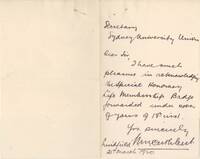 Secretary
Sydney University Union
Dear Sir,
I have much
pleasure in acknowledging
the Special Honorary
Life Membership Badge
forwarded under cover
of yours of 18th inst.
Yrs sincerely
Lindfield
21st March 1920